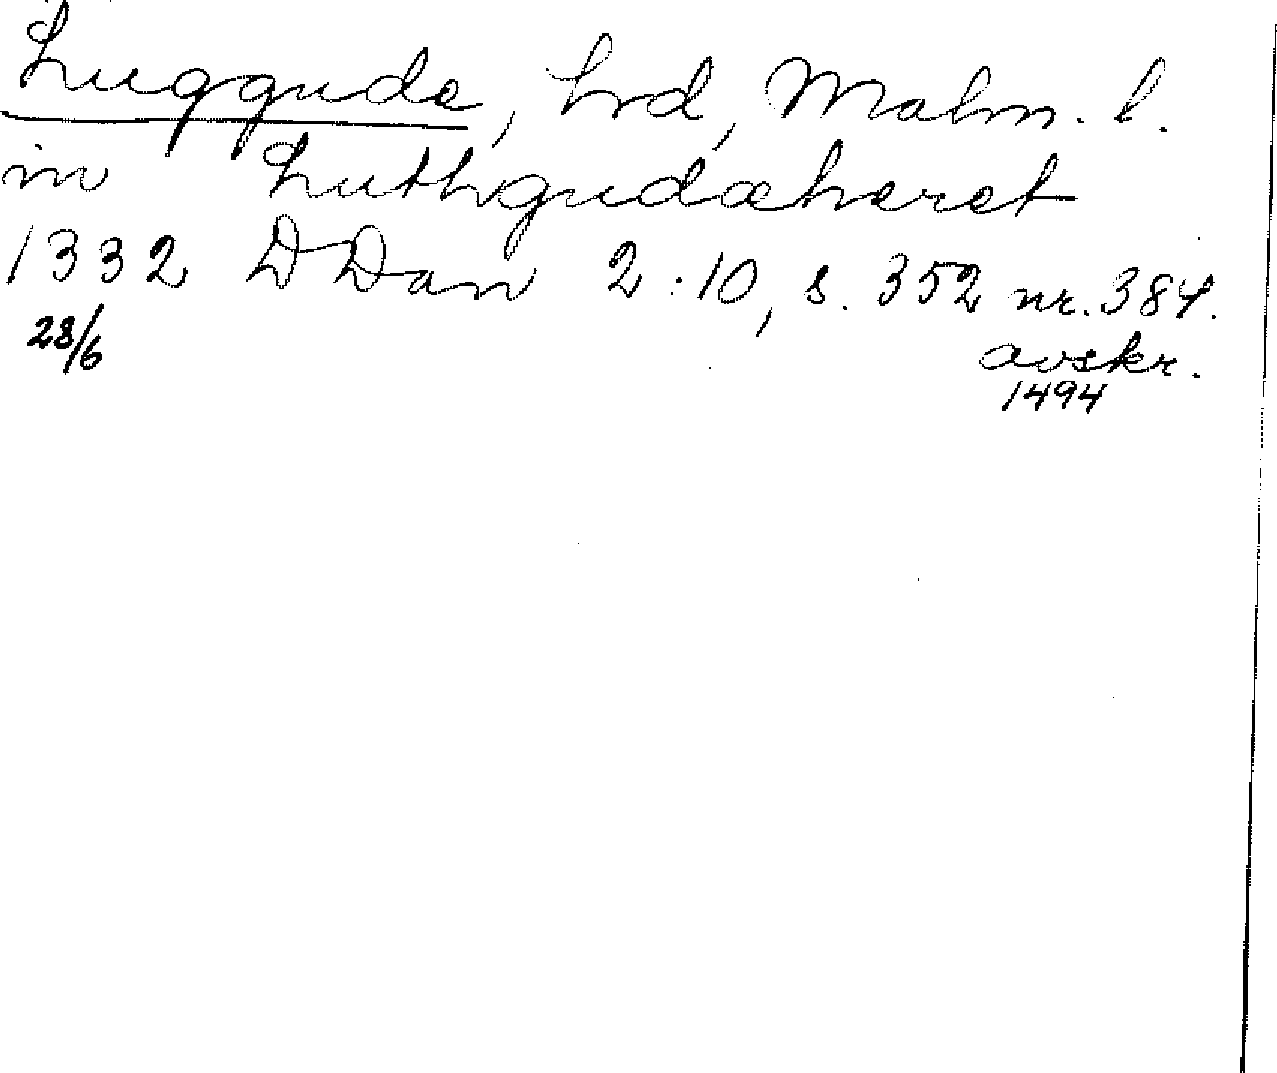 Luggude, hrd, Malm. l.
in Luthgudæheret
1332 DDan 2:10, s. 352 nr. 384.
28/6 avskr.
1494